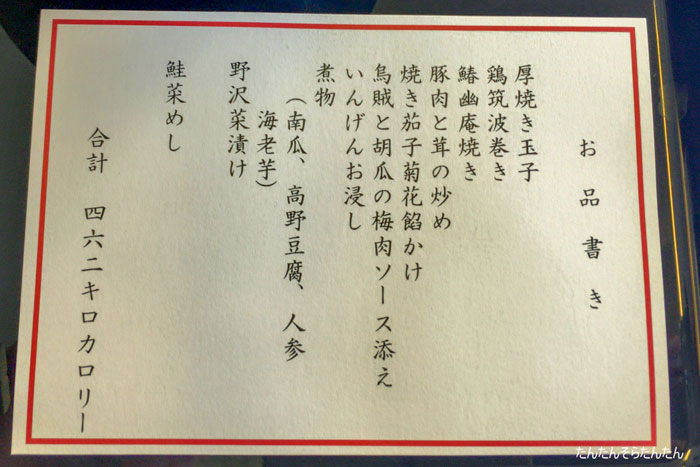 お品書き
厚焼き玉子
鶏筑波巻き
鰆幽庵焼き
豚肉と茸の炒め
焼き茄子菊花餡かけ
烏賊と胡瓜の梅肉ソース添え
いんげんお浸し
煮物
(南瓜、高野豆腐、人参
海老芋)
野沢菜漬け
鮭菜めし
合計 四六二キロカロリー
たんたんそらたんたん